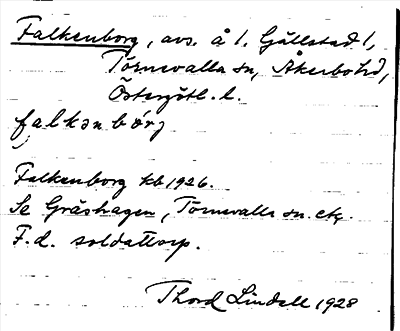 Falkenborg, avs. å 1. Gällstad 1,
Törnevalla sn, Åkerbo hd,
Östergötl. l.
falkənbórj
Falkenborg kb 1926.
Se Gråshagen, Törnevalla sn. etc.
F.d. soldattorp.
Thord Lindell 1928